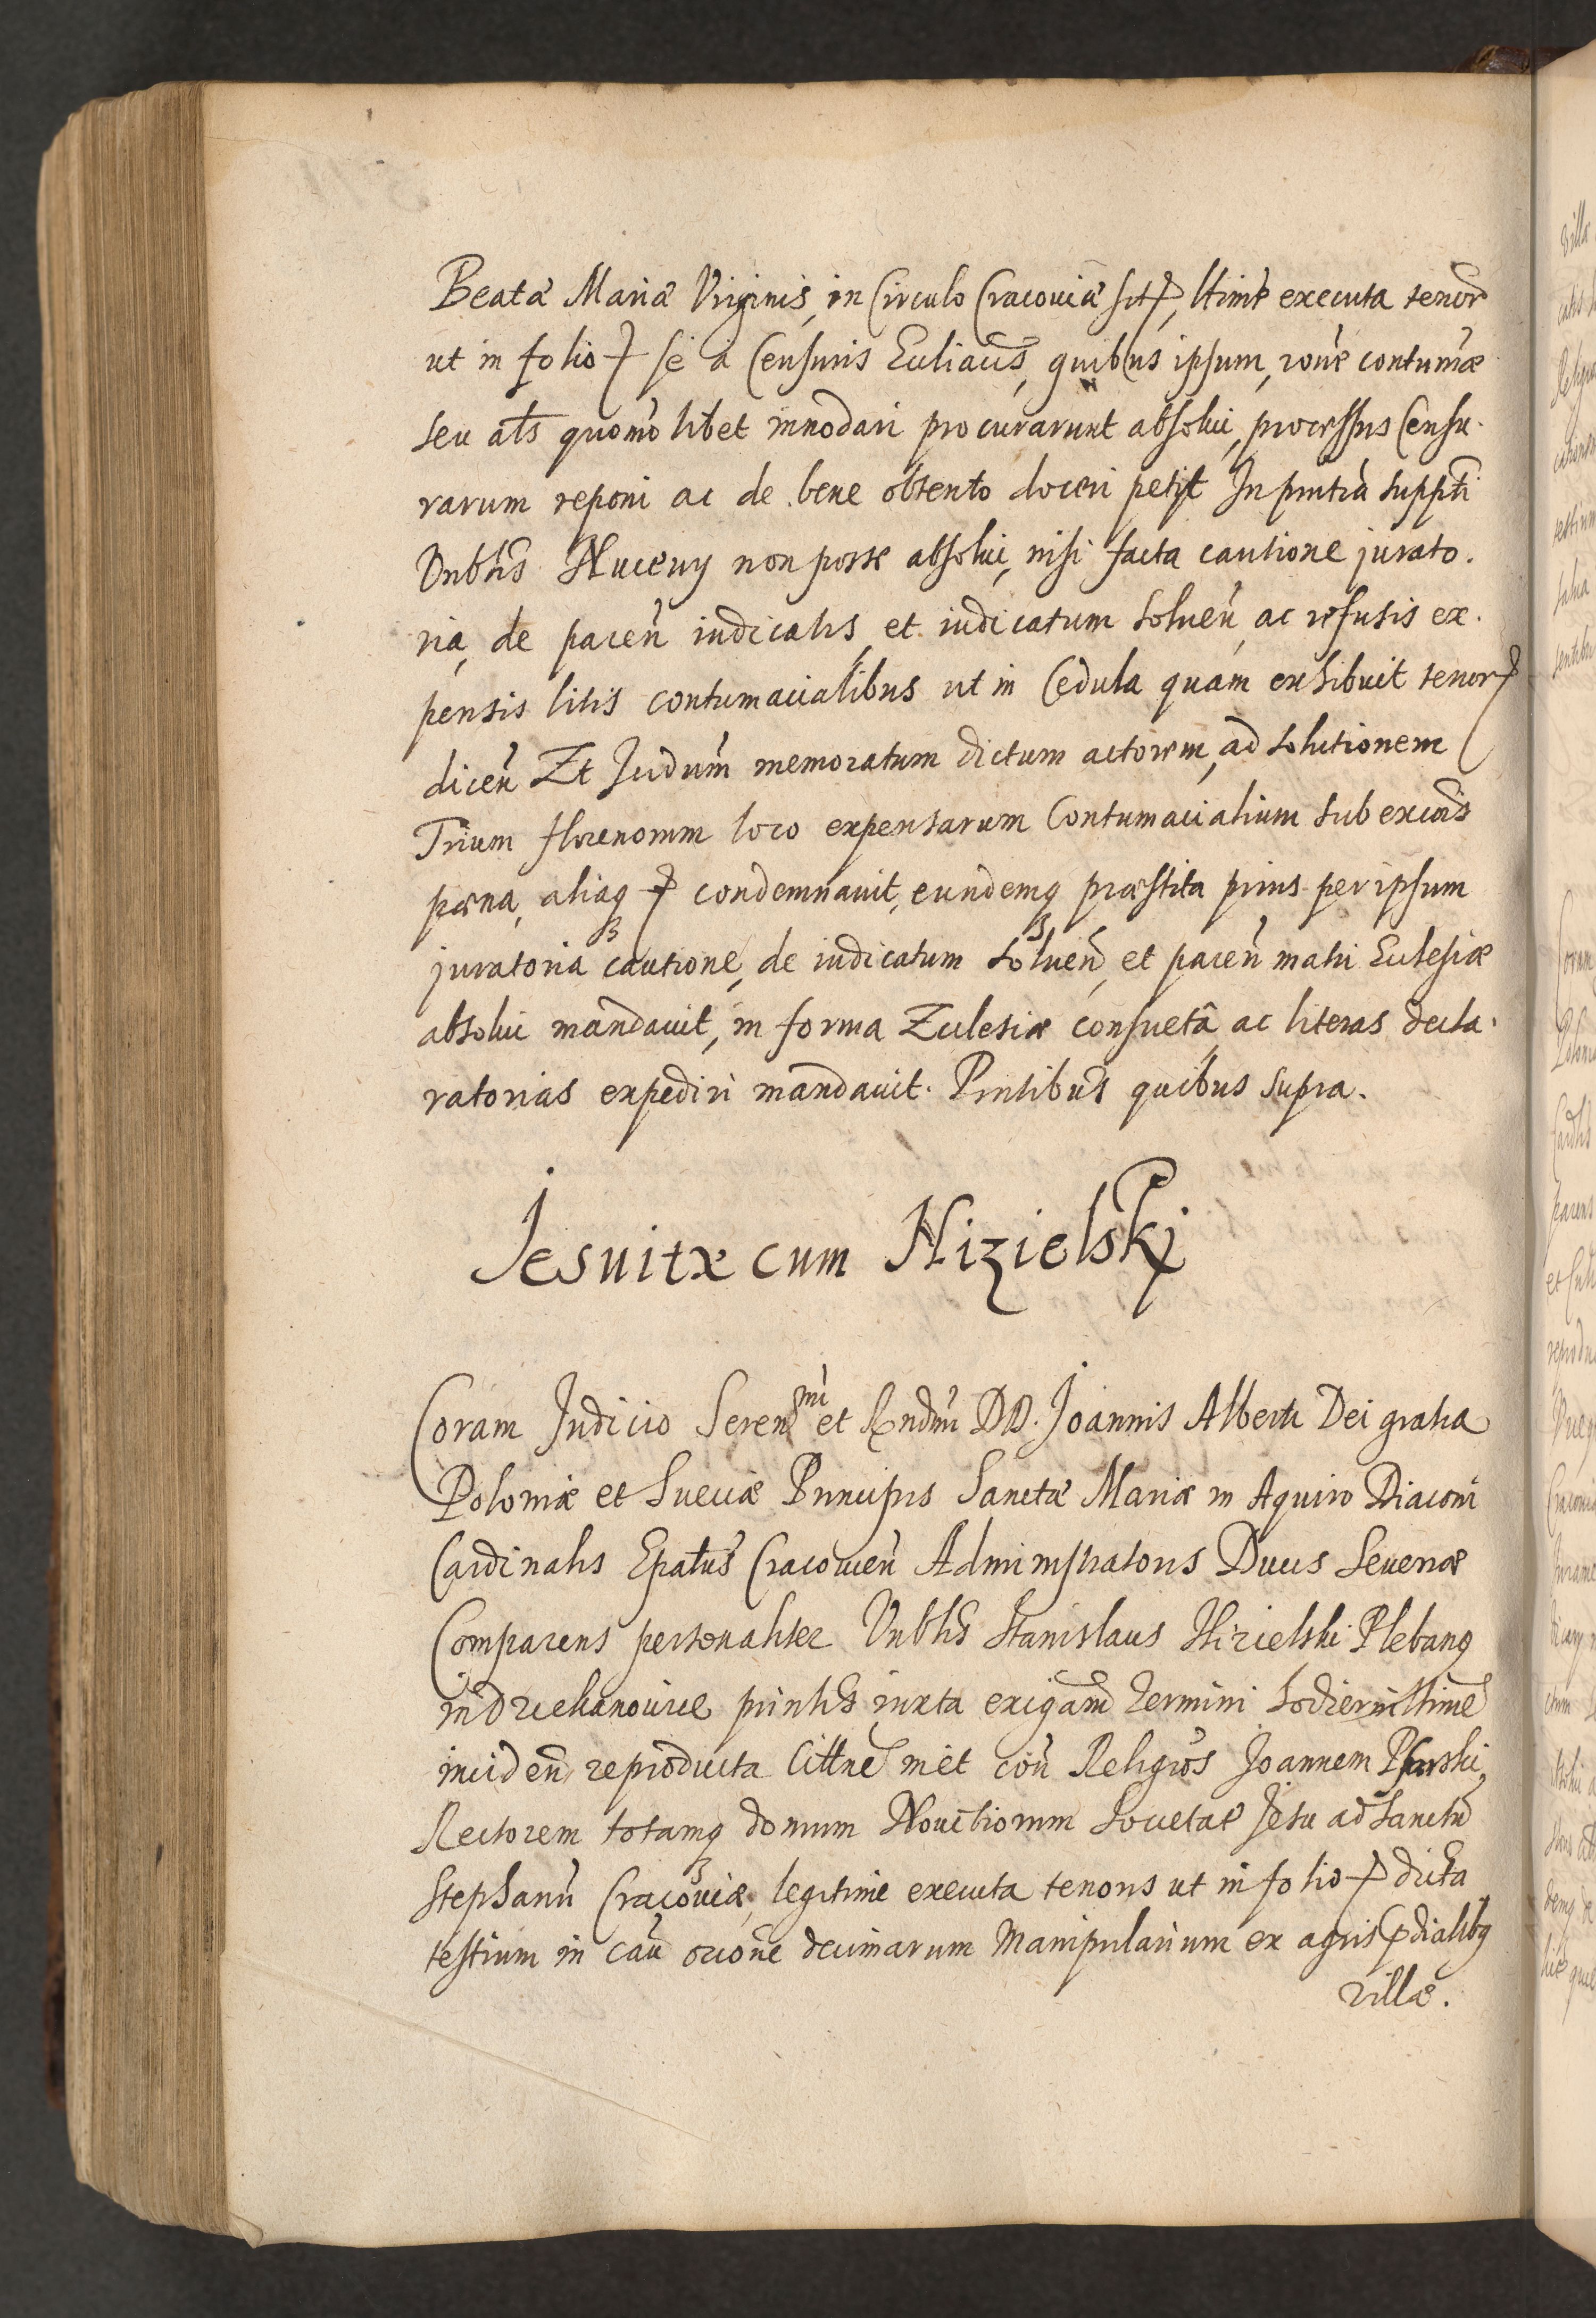 Beatæ Mariæ Virginis, in Circulo Cracoviæ sit, ltime executa tenor
ut in folio se a Censuris Ecclīacis, quibus ipsum, rōne contumæ
seu als quomōlibet innodari procurarunt absolvi, processus Censu-
rarum reponi ac de bene obtento doceri petijt In pn̄tia suppti
Vnblis Nuceny non posse absolui, nisi facta cautione jurato-
ria, de paren̄ iudicatis et iudicatum soluen̄ ac refusis ex-
pensis litis contumacialibus ut in Cedula quam exhibuit tenor
dicen̄ Et Judm̄ memoratum dictum actorem, ad solutionem
Trium florenorum loco expensarum Contumacialium sub excōis
pæna, aliaq condemnauit, eundemq præstita prius per ipsum
juratoria cautione, de iudicatum soluen̄, et paren̄ matri Ecclesiæ
absolui mandauit, in forma Ecclesiæ consueta ac literas decla-
ratorias expediri mandauit. Pn̄tibus quibus supra.
Jesuitæ cum Nizielskj
Coram Judicio Serenmi et Rndmi DD. Joannis Alberti Dei gratia
Poloniæ et Sueciæ Principis Sanctæ Mariæ in Aquiro Diaconi
Cardinalis Epatus Cracouien̄ Administratoris Ducis Seueriæ
Comparens personaliter Vnblis Stanislaus Nizielski Plebanq
in juxta exigam̄ termini hodierni ltime
inciden̄ reproducta Cittne met con̄ Religiōs Joannem
Rectorem totamq domum Nouitiorum Societae Jesu ad Sanctū
Stephanū Cracouiæ, legitime executa tenoris ut in folio dicta
testium in cau ōcōne decimarum Manipularium ex agris p̄dialibq
villæ.